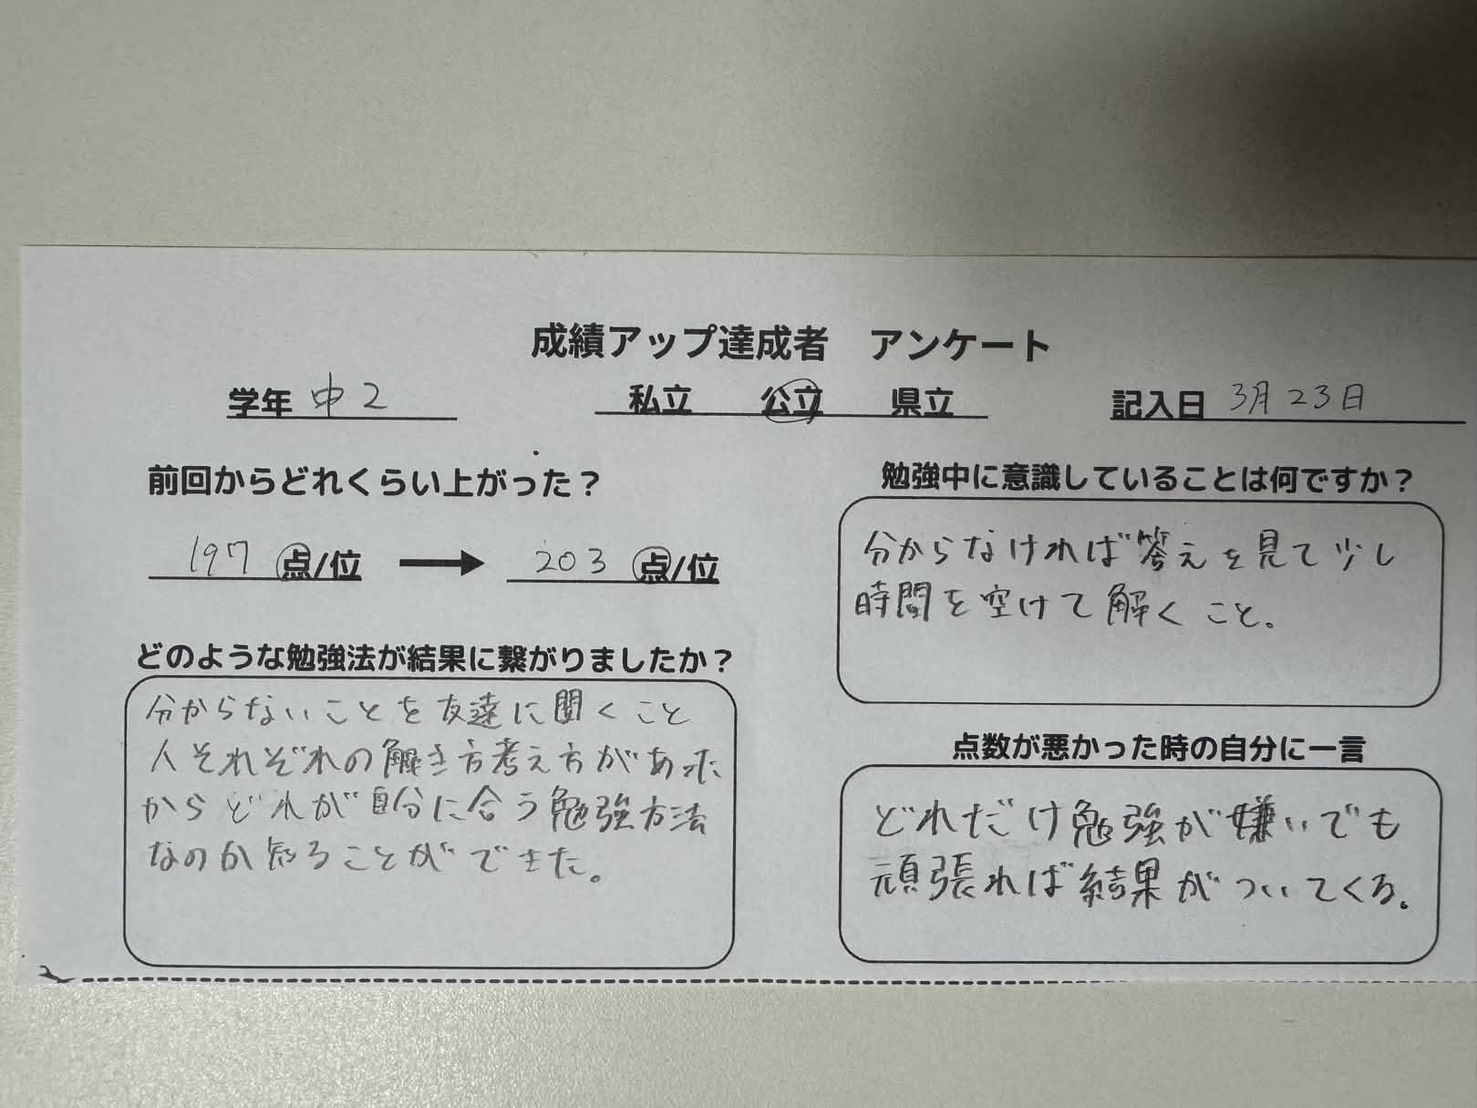 成績アップ達成者 アンケート
学年 中2 私立 公立 県立 記入日 3月23日
前回からどれくらい上がった？
197 点/位 → 203 点/位
どのような勉強法が結果に繋がりましたか？
分からないことを友達に聞くこと
人それぞれの解き方考え方があった
からどれが自分に合う勉強方法
なのか知ることができた。
勉強中に意識していることは何ですか？
分からなければ答えを見て少し
時間を空けて解くこと。
点数が悪かった時の自分に一言
どれだけ勉強が嫌いでも
頑張れば結果がついてくる。